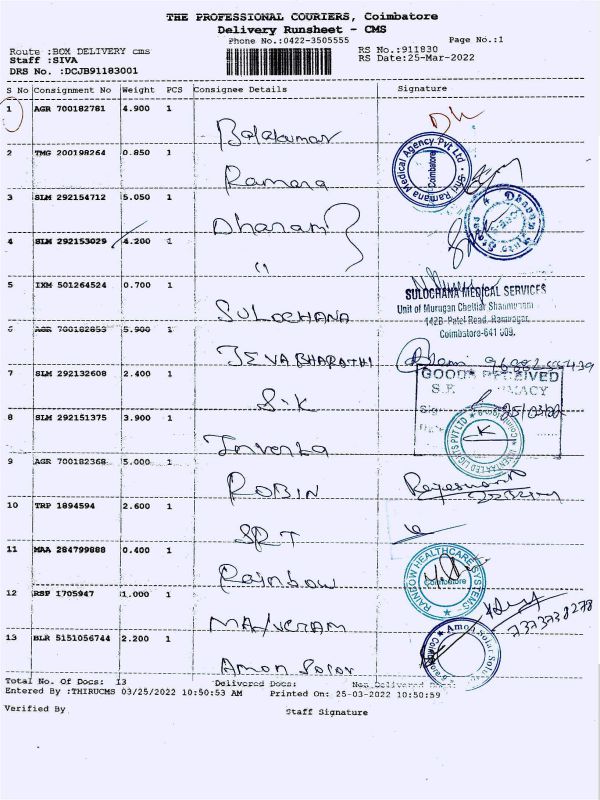 THE PROFESSIONAL COURIERS, Coimbatore
Delivery Runsheet - CMS
Phone No.:0422-3505555 Page No.:1
Route :BOX DELIVERY cms RS No.:911830
Staff :SIVA RS Date:25-Mar-2022
DRS No. :DCJB91183001
S No Consignment No Weight PCS Consignee Details Signature
1 AGR 700182781 4.900 1
Balakumar
2 TMG 200198264 0.850 1
Ramana
Shri Ramana Medical Agency Pvt Ltd
Coimbatore
3 SLM 292154712 5.050 1
Dharani
4 SLM 292153029 4.200 1
"
5 IXM 501264524 0.700 1
SULOCHANA
SULOCHANA MEDICAL SERVICES
Unit of Murugan Chettiar Shanmugam
142B-Patel Road, Ramnagar,
Coimbatore-641 009.
6 AGR 700182853 5.900 1
JEVABHARATHI
7 SLM 292132608 2.400 1
GOODS RECEIVED
S.K
8 SLM 292151375 3.900 1
9 AGR 700182368 5.000 1
ROBIN
10 TRP 1894594 2.600 1
SRT
11 MAA 284799888 0.400 1
Rainbow
RAINBOW HEALTHCARE SYSTEMS
Coimbatore
12 RSP 1705947 1.000 1
7373738278
13 BLR 5151056744 2.200 1
Amon Solar
Amon Solar
Total No. Of Docs: 13 Delivered Docs: Non Delivered Docs:
Entered By :THIRUCMS 03/25/2022 10:50:53 AM Printed On: 25-03-2022 10:50:59
Verified By Staff Signature